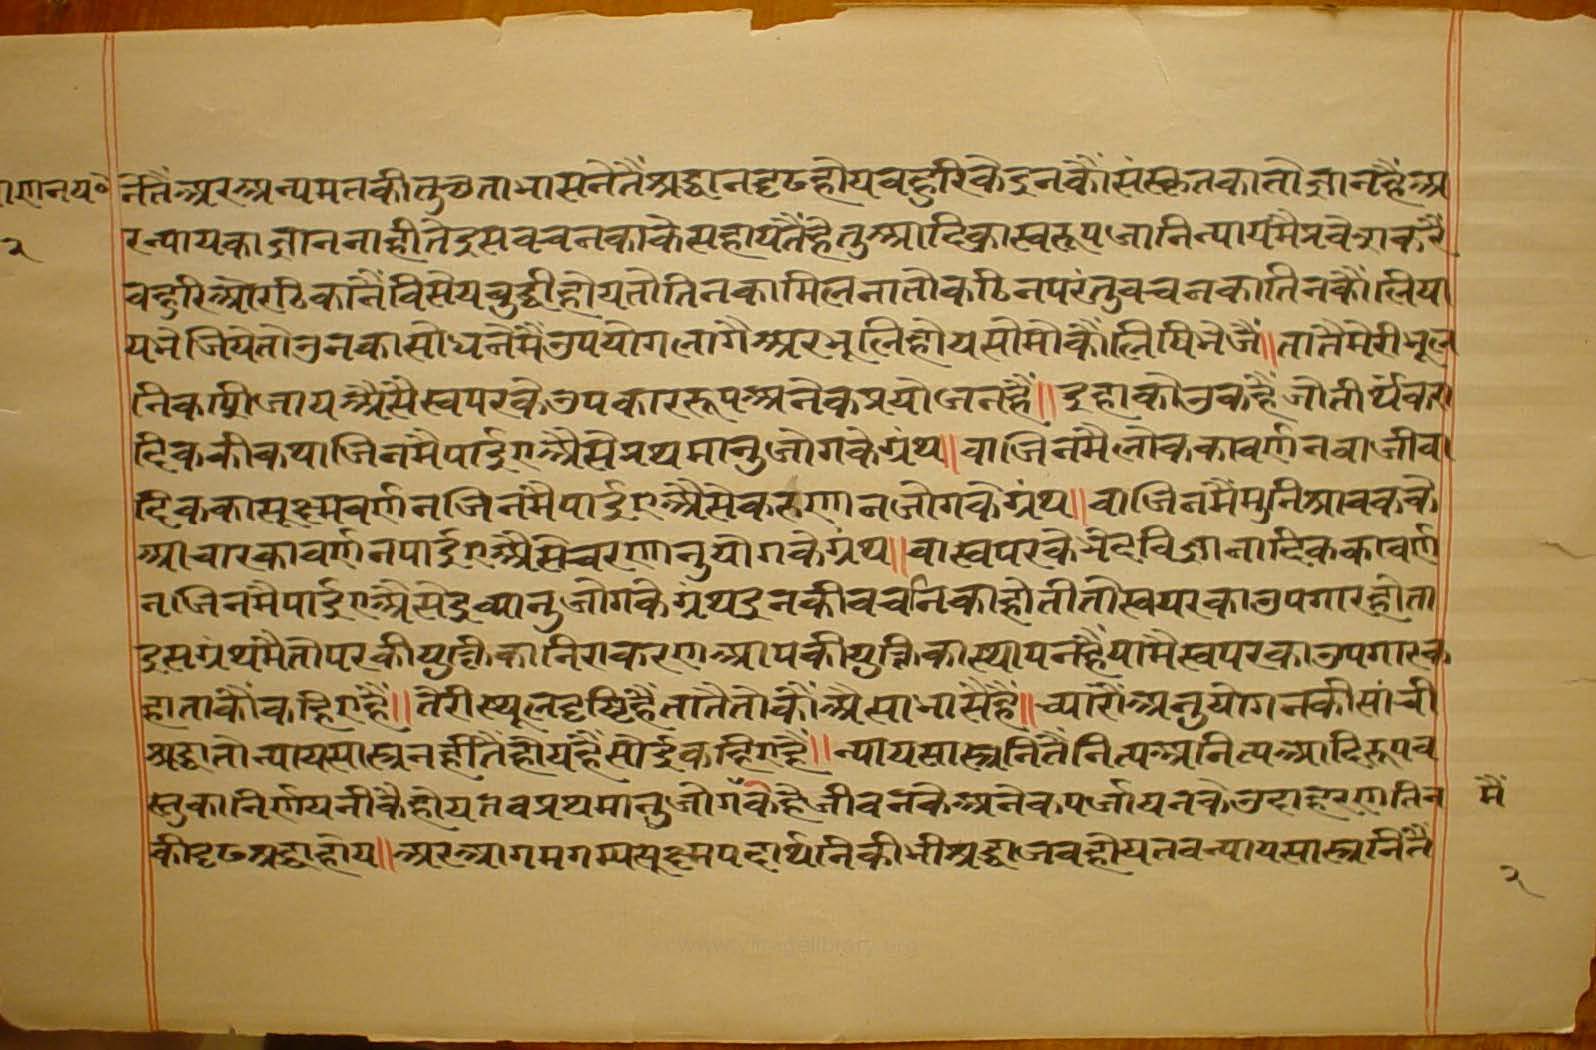 नेतैंअरअन्यमतकीतुछताभासनेतैंश्रद्धानदृढहोयवहुरिकेइनकौंसंस्कृतकातोज्ञानहैंअ
रन्यायकाज्ञाननाहीतेइसवचनकाकेसहायतैंहेतुआदिकास्वरूपजानिन्यायमैप्रवेशकरैं
वहुरिओरठिकानैंविसेयवुद्धीहोयतोतिनकामिलनातोकठिनपरंतुवचनकातिनकौंलिया
यभेजियेतोउनकासोधनेमैंउपयोगलागैअरभूलिहोयसोमोकौंलिषिभेजैं॥तातैमेरीभूल
निकासीजायअैसैस्वपरकेउपकाररूपअनेकप्रयोजनहैं॥इहाकोउकहैंजोतीर्थंकरा
दिककीकथाजिनमैपाईएअैसेप्रथमानुजोगकेग्रंथ॥वाजिनमैलोककावर्णनवाजीवा
दिककासूक्ष्मवर्णनजिनमैपाईएअैसेकरुणानजोगकेग्रंथ॥वाजिनमैंमुनिश्रावकके
आचारकावर्णनपाईएअैसेचरणानुयोगकेग्रंथ॥वास्वपरकेभेदविज्ञानादिककावर्ण
नजिनमैपाईएअैसेद्रव्यानुजोगकेग्रंथइनकीवचनिकाहोतीतौस्वपरकाउपगारहोता
इसग्रंथमैतोपरकीयुक्तिकानिराकरणआपकीयुक्तिकास्थापनहैंयामैस्वपरकाउपगारक
हाताकौंकहिएहैं॥तेरीस्थूलदृष्टिहैंतातैतोकौंअैसाभासैंहैं॥च्यारौंअनुयोगनकीसांची
श्रद्धातोन्यायसास्त्रनहीतैंहोयहैंसोईकहिएहैं॥न्यायसास्त्रनितैंनित्यअनित्यआदिरूपव
स्तुकानिर्णयनीकैहोयतवप्रथमानुजोगकेहैजीवनकेअनेकपर्जायनकेउदाहरणतिन मैं
कीदृढश्रद्धाहोय॥अरआगमगम्यसूक्ष्मपदार्थनिकीभीश्रद्धाजवहोयतवन्यायसास्त्रनितैं
२
२